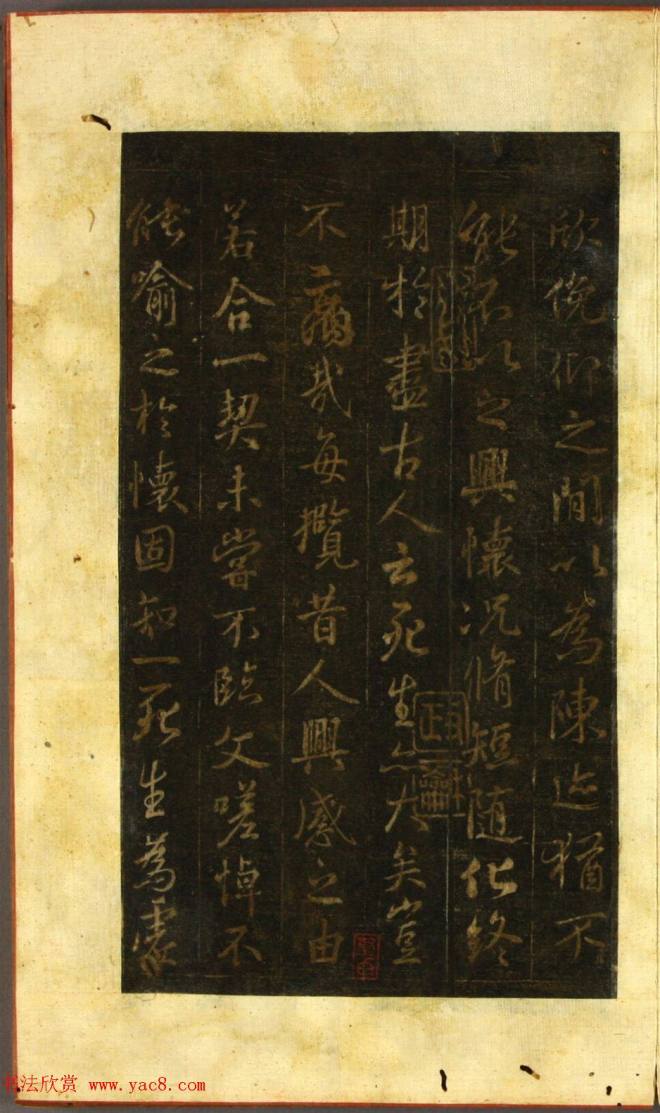 欣俛仰之間以為陳迹猶不
能不以之興懷況脩短隨化終
期於盡古人云死生亦大矣豈
不痛哉每攬昔人興感之由
若合一契未嘗不臨文嗟悼不
能喻之於懷固知一死生為虛
书法欣赏 www.yac8.com